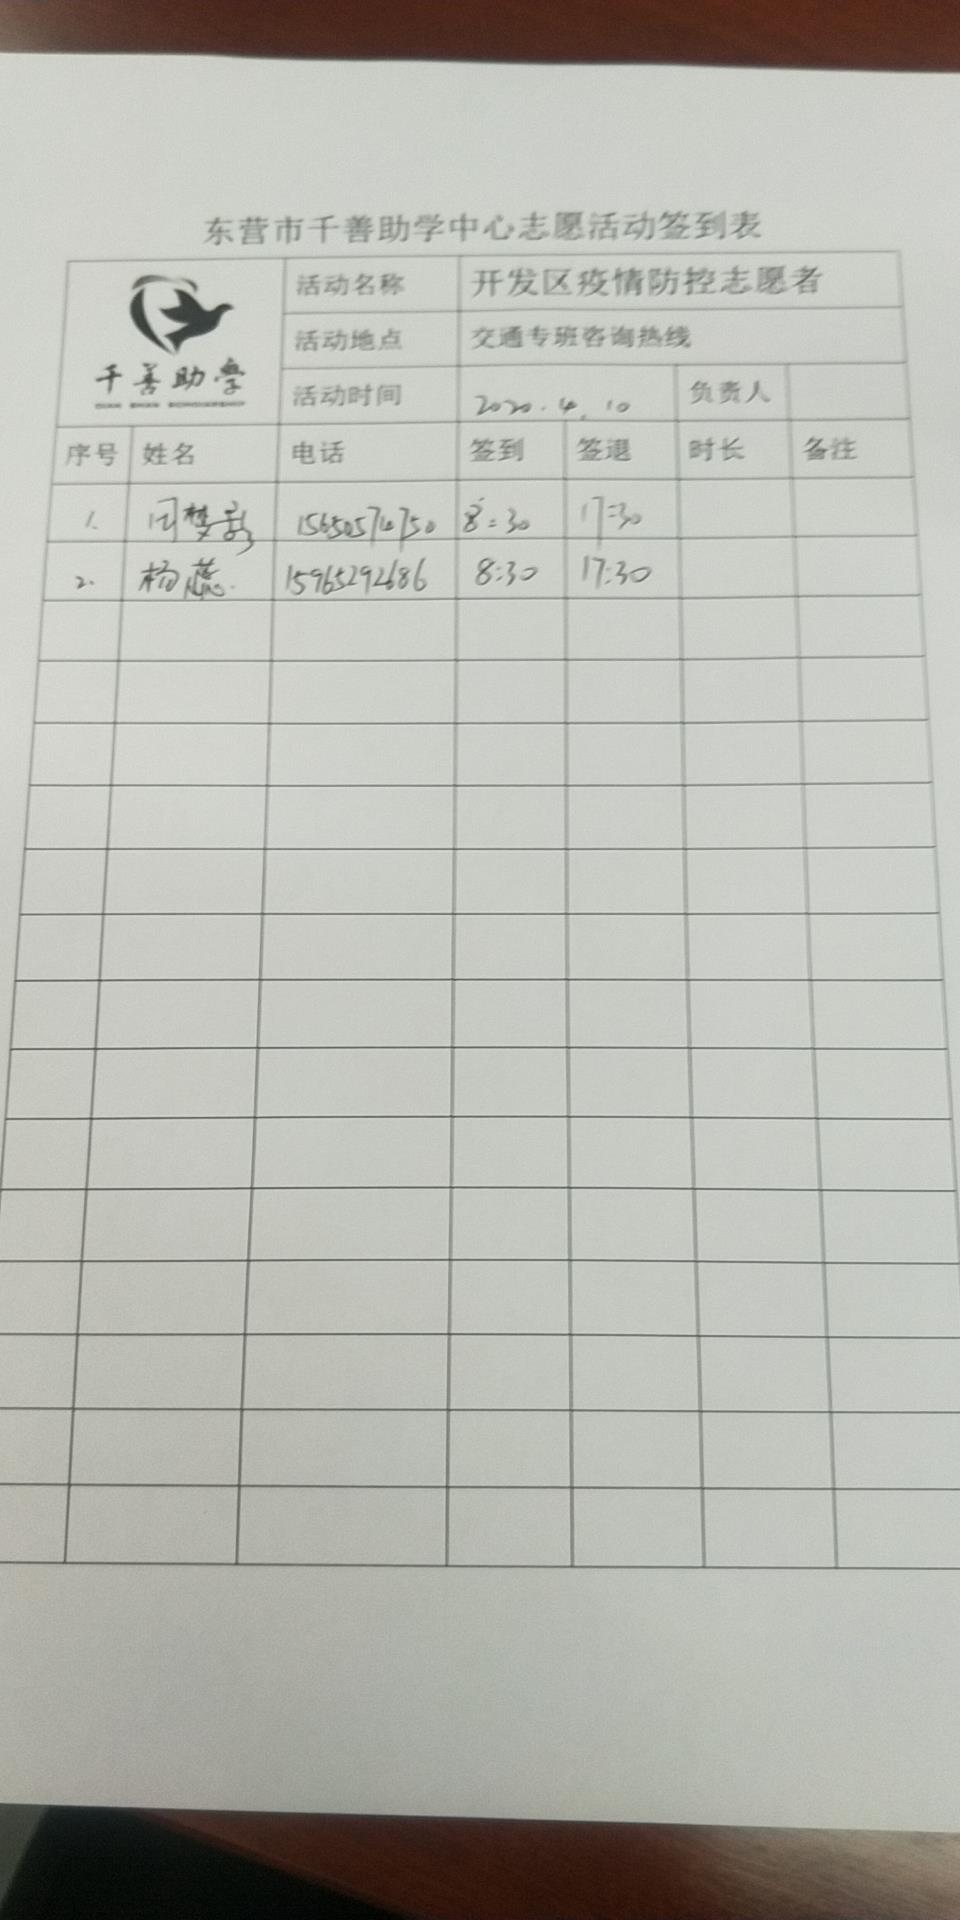 东营市千善助学中心志愿活动签到表
千善助学
活动名称 开发区疫情防控志愿者
活动地点 交通专班咨询热线
活动时间 2020.4.10 负责人
序号 姓名 电话 签到 签退 时长 备注
1. 闫梦影 15650574750 8:30 17:30
2. 杨蕊 15965292686 8:30 17:30